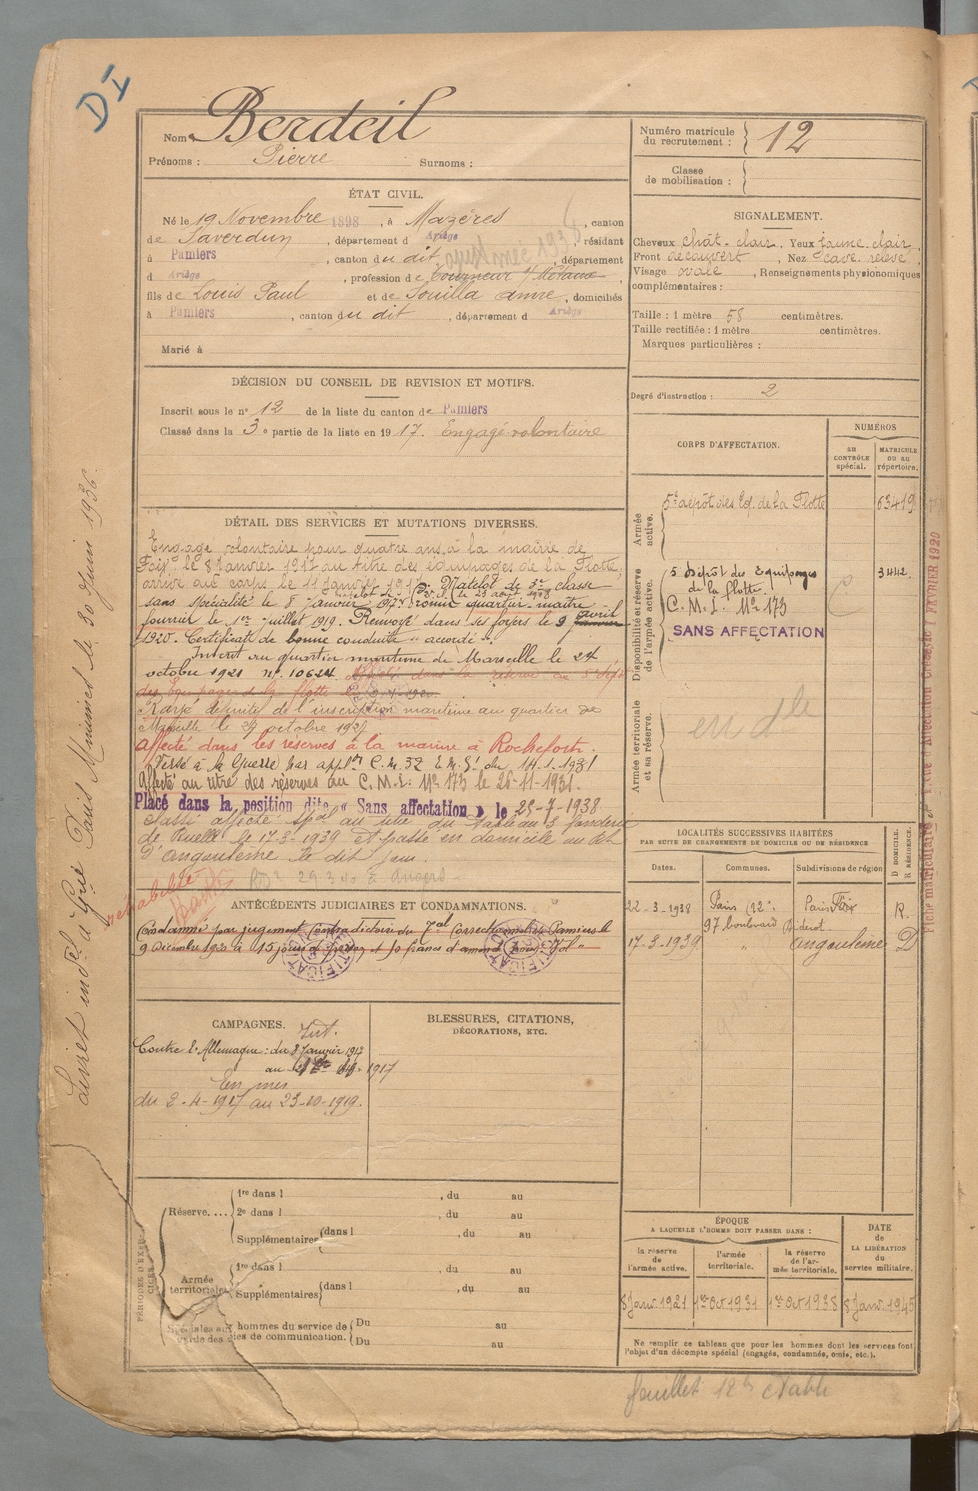 DI
Nom Berdeil
Prénoms : Pierre Surnoms :
Numéro matricule du recrutement : 12
Classe de mobilisation :
ÉTAT CIVIL.
Né le 19 Novembre 1898, à Mazères, canton
de Saverdun, département d Ariège, résidant
à Pamiers, canton du dit, département
d Ariège, profession de Tourneur s/ Métaux
fils de Louis Paul et de Souilla Anne, domiciliés
à Pamiers, canton du dit, département d Ariège
Marié à
SIGNALEMENT.
Cheveux chât-clair, Yeux jaune clair,
Front découvert, Nez cave relevé,
Visage ovale, Renseignements physionomiques
complémentaires :
Taille : 1 mètre 58 centimètres.
Taille rectifiée : 1 mètre centimètres.
Marques particulières :
Degré d'instruction : 2
DÉCISION DU CONSEIL DE REVISION ET MOTIFS.
Inscrit sous le n° 12 de la liste du canton de Pamiers
Classé dans la 3e partie de la liste en 1917. Engagé volontaire
DÉTAIL DES SERVICES ET MUTATIONS DIVERSES.
Engagé volontaire pour quatre ans à la mairie de
Foix, le 8 Janvier 1917 au titre des équipages de la Flotte,
arrivé au corps le 11 Janvier 1917. Matelot de 3e classe
sans spécialité le 8 Janvier 1917. Promu quartier-maître
fourrier le 1er Juillet 1919. Renvoyé dans ses foyers le 9 avril
1920. Certificat de bonne conduite "accordé".
Inscrit au quartier maritime de Marseille le 24
octobre 1921 n° 10624. Affecté dans la réserve au 5e dépôt
des Equipages de la flotte
Rayé définitif de l'inscription maritime au quartier de
Marseille le 27 octobre
Affecté dans les réserves à la marine à Rochefort.
Versé à la Guerre par appl°n C.M. 32 E.M.G. du 14.1.1931
Affecté au titre des réserves au C.M.I. n° 173 le 26-11-1931.
Placé dans la position dite « Sans affectation » le 25-7-1938
Classé affecté spal au titre du tableau 3 fonderie
de Ruelle le 17-3-1939 et passé en domicile au Bt
d'Angoulême le dit jour.
29.3.40 à Angers
CORPS D'AFFECTATION.
NUMÉROS
AU CONTRÔLE spécial.
MATRICULE OU AU répertoire.
Armée active.
5e dépôt des Eq. de la Flotte 63419
Disponibilité et réserve de l'armée active.
5 Dépôt des Equipages de la flotte. 3442
C.M.I. n° 173
SANS AFFECTATION
Armée territoriale et sa réserve.
en dle
LOCALITÉS SUCCESSIVES HABITÉES
PAR SUITE DE CHANGEMENTS DE DOMICILE OU DE RÉSIDENCE
Dates. Communes. Subdivisions de région
D DOMICILE. R RÉSIDENCE.
22-3-1938 Paris (12e) 97 boulevard Diderot. Paris R.
17-3-1939 " Angoulême D
réhabilité
ANTÉCÉDENTS JUDICIAIRES ET CONDAMNATIONS.
Condamné par jugement contradictoire du Tal Correctionnel de Pamiers le
9 Décembre 1922 à 15 jours de prison et 50 francs d'amende pour "Vol"
CAMPAGNES.
Int.
Contre l'Allemagne : du 8 Janvier 1917
au 1917
En mer
du 2-4-1917 au 23-10-1919.
BLESSURES, CITATIONS,
DÉCORATIONS, ETC.
PÉRIODES D'EXERCICES
Réserve.... 1re dans l , du au
2e dans l , du au
Supplémentaires dans l , du au
Armée territoriale 1re dans l , du au
Supplémentaires dans l , du au
Spéciales aux hommes du service de garde des voies de communication. Du au
Du au
ÉPOQUE
A LAQUELLE L'HOMME DOIT PASSER DANS :
la réserve de l'armée active. l'armée territoriale. la réserve de l'armée territoriale.
DATE de LA LIBÉRATION du service militaire.
8 Janv. 1921 1er Oct 1931 1er Oct 1938 8 Janv. 1945
Ne remplir ce tableau que pour les hommes dont les services font
l'objet d'un décompte spécial (engagés, condamnés, omis, etc.).
feuillet établi
Livret indel à Paris Minimes le 30 Juin 1936.